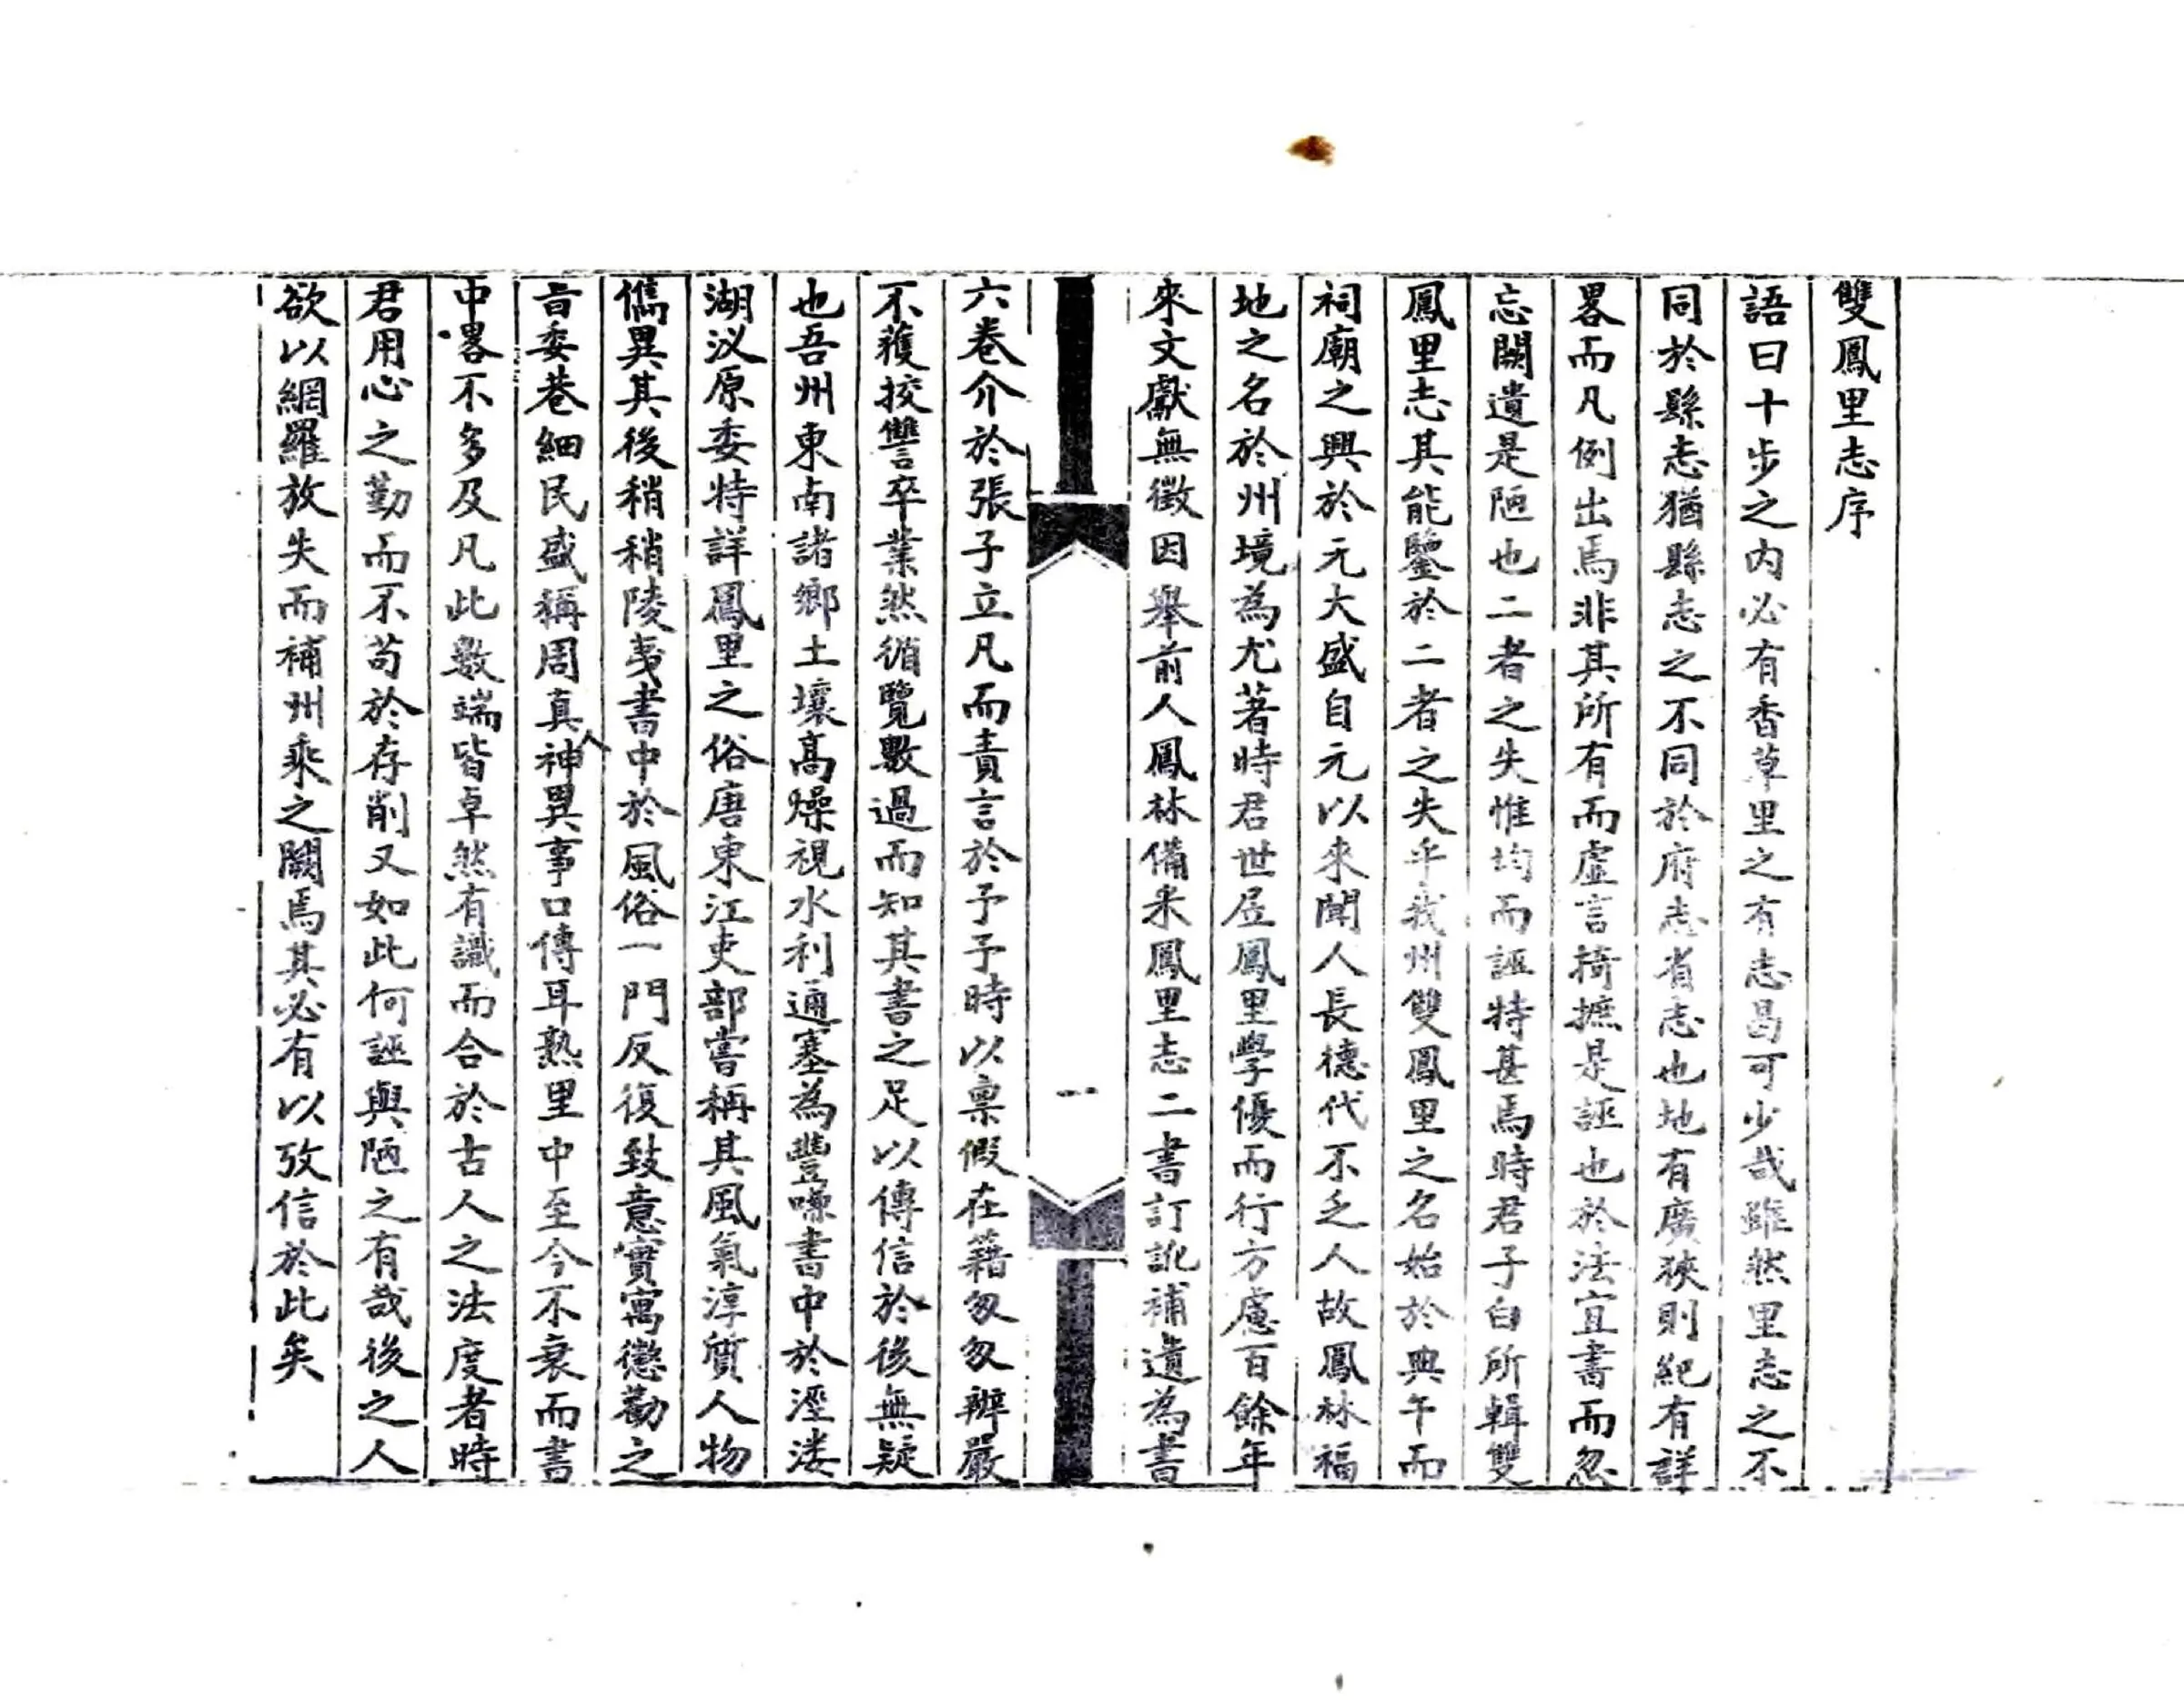 雙鳳里志序
語曰十步之内必有香草里之有志曷可少哉雖然里志之不
同於縣志猶縣志之不同於府志省志也地有廣狹則紀有詳
畧而凡例出焉非其所有而虛言掎摭是誣也於法宜書而忽
忘闕遺是陋也二者之失惟均而誣特甚焉時君子白所輯雙
鳳里志其能鑒於二者之失乎我州雙鳳里之名始於典午而
祠廟之興於元大盛自元以來聞人長德代不乏人故鳳林福
地之名於州境為尤著時君世居鳳里學優而行方慮百餘年
來文獻無徵因舉前人鳳林備采鳳里志二書訂訛補遺為書
六卷介於張子立凡而責言於予予時以稟假在藉匆匆辦嚴
不獲挍讐卒業然循覽數過而知其書之足以傳信於後無疑
也吾州東南諸鄉土壤高燥視水利通塞為豐嗛書中於湮漊
湖汊原委特詳鳳里之俗唐東江吏部嘗稱其風氣淳質人物
儁異其後稍稍陵夷書中於風俗一門反復致意實寓懲勸之
旨委巷細民盛稱周真人神異事口傳耳熟里中至今不衰而書
中畧不多及凡此數端皆卓然有識而合於古人之法度者時
君用心之勤而不苟於存削又如此何誣與陋之有哉後之人
欲以網羅放失而補州乘之闕焉其必有以攷信於此矣